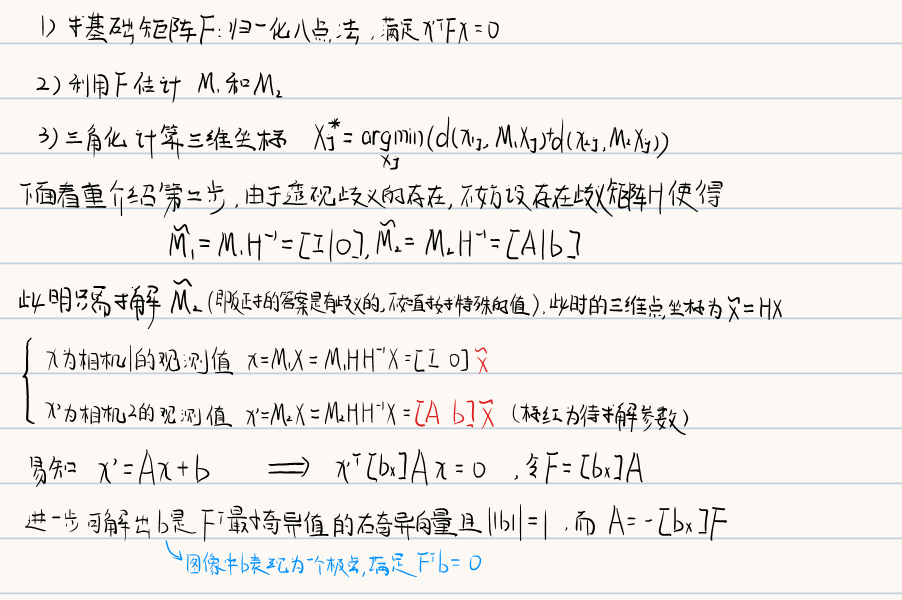 1) 求基础矩阵F：归一化八点法，满足x'ᵀFx=0
2) 利用F估计 M₁和M₂
3) 三角化计算三维坐标 Xⱼ* = argmin_{Xⱼ}(d(x₁ⱼ, M₁Xⱼ)+d(x₂ⱼ, M₂Xⱼ))
下面着重介绍第二步，由于透视歧义的存在，不妨设存在歧义矩阵H使得
M̃₁ = M₁H⁻¹ = [I|0], M̃₂ = M₂H⁻¹ = [A|b]
此时只需求解 M̃₂ (即反正求的答案是有歧义的，不如直接求特殊的值)，此时的三维点坐标为 X̃ = HX
x为相机1的观测值 x=M₁X = M₁HH⁻¹X = [I 0]X̃
x'为相机2的观测值 x'=M₂X = M₂HH⁻¹X = [A b]X̃ (标红为待求解参数)
易知 x'=Ax+b ⟹ x'ᵀ[b×]Ax=0，令F=[b×]A
进一步可解出b是Fᵀ最小奇异值的右奇异向量且||b||=1，而 A=-[b×]F
图像中b表现为一个极点，满足Fᵀb=0